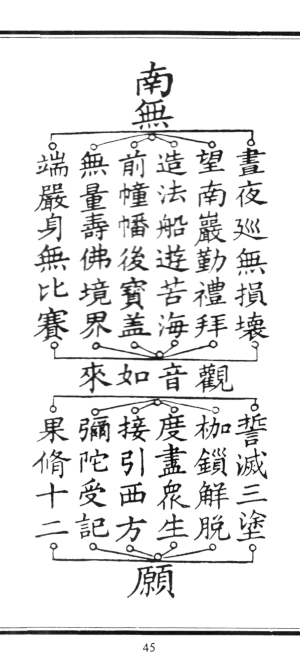 南無
晝夜廵無損壞
望南巖勤禮拜
造法船遊苦海
前幢幡後寳盖
無量壽佛境界
端嚴身無比賽
觀音如來
誓滅三塗
枷鎖解脫
度盡衆生
接引西方
彌陀受記
果脩十二
願
45